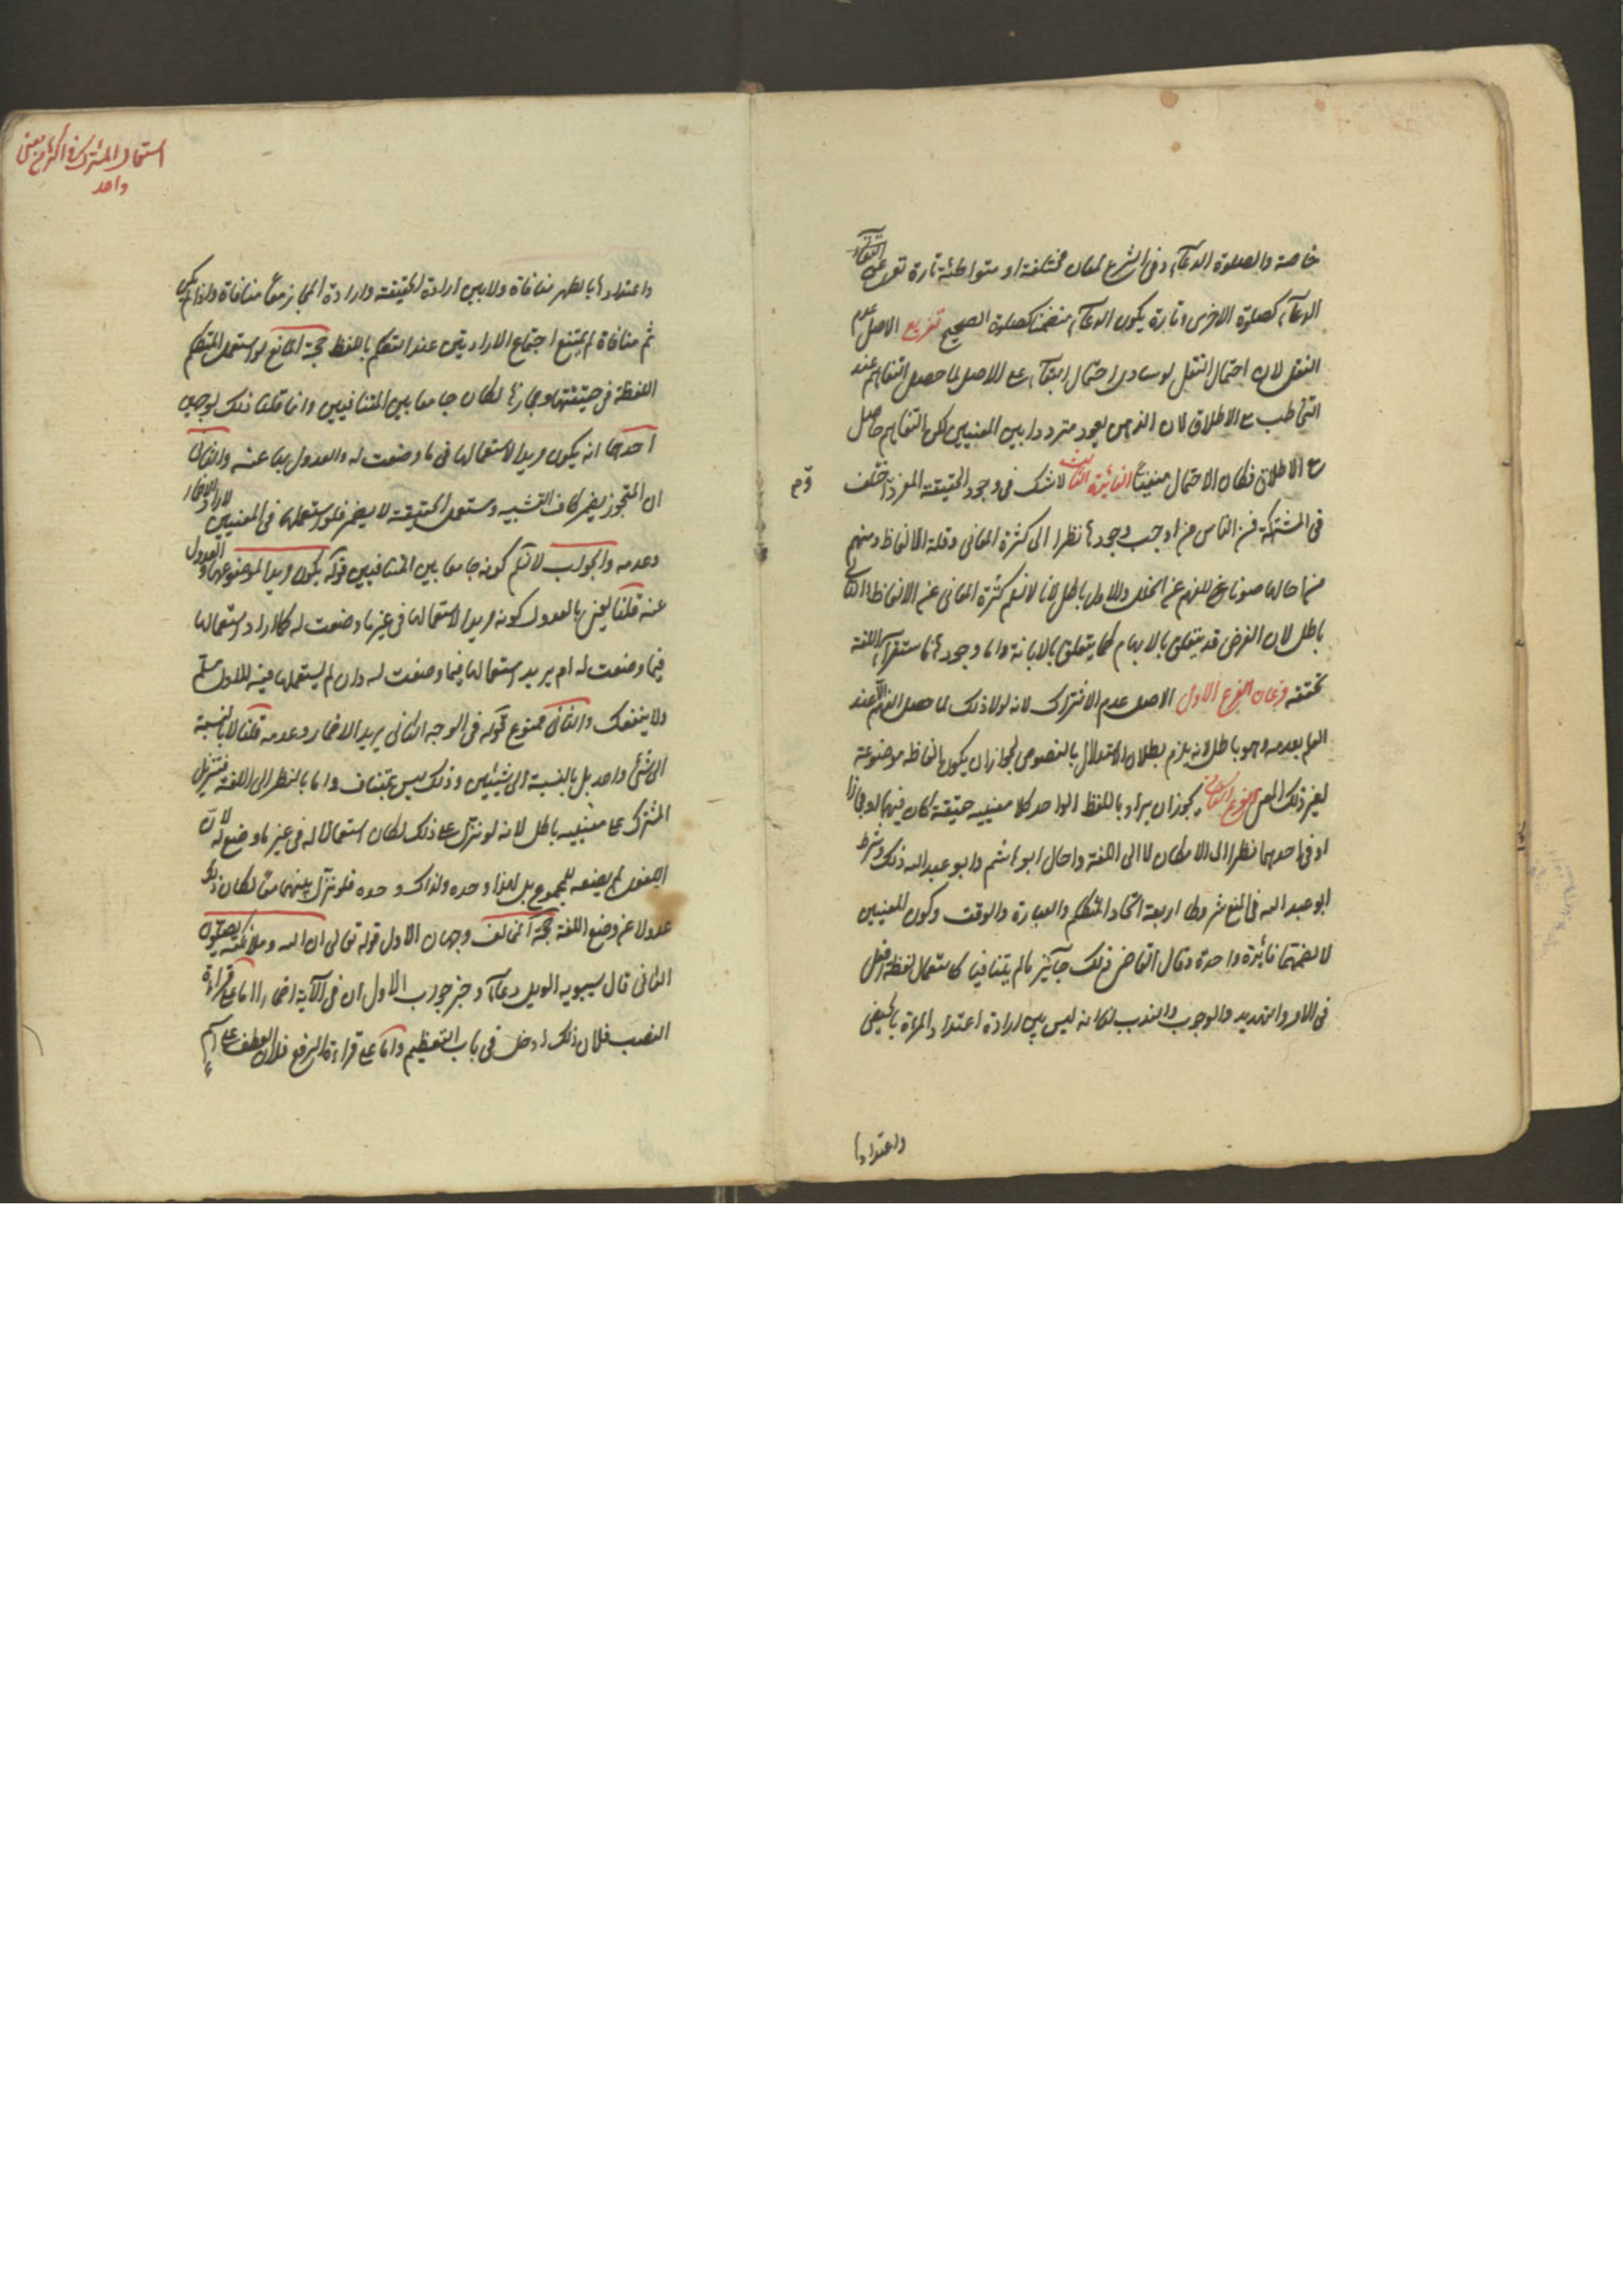 خاصة والصلوة الدعآء وفى الشرع لمعان مختلفة او متواطئة تارة تعرى عن
الدعآء كصلوة الاخرس وتارة يكون الدعآء منضما كصلوة الصحيح تفريع الاصل عدم
النقل لان احتمال النقل لو ساوى احتمال البقآء على الاصل لما حصل التفاهم عند
التخاطب مع الاطلاق لان الذهن يعود مترددا بين المعنيين لكن التفاهم حاصل
مع الاطلاق فكان الاحتمال منفيا الفائدة الثالثة لا شك فى وجود الحقيقة المفردة اختلف
فى المشتركة فمن الناس من اوجب وجودها نظرا الى كثرة المعانى وقلة الالفاظ ومنهم
من احالها صونا للفهم عن الخلل والاول باطل لانا لا نسلم كثرة المعانى عن الالفاظ والثانى
باطل لان الغرض قد يتعلق بالابهام كما يتعلق بالابانة واما وجودها فاستقرآء اللغة
يحققه فرعان الفرع الاول الاصل عدم الاشتراك لانه لولا ذلك لما حصل الفهم الا عند
العلم بعدمه وهو باطل لانه يلزم بطلان الاستدلال بالنصوص لجواز ان يكون الفاظه موضوعة
لغير ذلك المعنى الفرع الثانى يجوز ان يراد باللفظ الواحد كلا معنييه حقيقة كان فيهما او مجازا
او فى احدهما نظرا الى الامكان لا الى اللغة واحال ابو هاشم وابو عبد الله ذلك وشرط
ابو عبد الله فى المنع شروطا اربعة اتحاد المتكلم والعبارة والوقت وكون المعنيين
لا تضمهما فائدة واحدة وقال القاضى ذلك جآئز ما لم يتنافيا كاستعمال لفظة افعل
فى الامر والتهديد والوجوب والندب لنا انه ليس بين ارادة اعتداد المرأة بالحيض
واعتدادها
استعمال المشترك فى اكثر من معنى
واحد
واعتدادها بالطهر منافاة ولا بين ارادة الحقيقة وارادة المجاز معا منافاة واذا لم يكن
ثم منافاة لم يمتنع اجتماع الارادتين عند التكلم باللفظ حجة المانع لو استعمل المتكلم
اللفظة فى حقيقتها ومجازها لكان جامعا بين المتنافيين وانما قلنا ذلك لوجهين
احدهما انه يكون مريدا لاستعمالها فى ما وضعت له والعدول بها عنه والثانى
ان المتجوز يضمر كاف التشبيه ومستعمل الحقيقة لا يضمر فلو استعملها فى المعنيين لاراد الاضمار
وعدمه والجواب لا نسلم كونه جامعا بين المتنافيين قوله يكون مريدا لموضوعها والعدول
عنه قلنا يعنى بالعدول كونه مريدا لاستعمالها فى غير ما وضعت له كما اراد استعمالها
فيما وضعت له ام يريد استعمالها فيما وضعت له وان لم يستعملها فيه الاول مسلم
ولا ينفعك والثانى ممنوع قوله فى الوجه الثانى يريد الاضمار وعدمه قلنا لا بالنسبة
الى شئ واحد بل بالنسبة الى شيئين وذلك ليس بمتناف واما بالنظر الى اللغة فتنزيل
المشترك على معنييه باطل لانه لو نزل على ذلك لكان استعمالا له فى غير ما وضع له لان
اللغوى لم يضعه للمجموع بل لهذا وحده ولذاك وحده فلو نزل عليهما معا لكان ذلك
عدولا عن وضع اللغة حجة المخالف وجهان الاول قوله تعالى ان الله وملائكته يصلون
الثانى قال سيبويه الويل دعآء وخبر جواب الاول ان فى الآية اضمارا اما على قراءة
النصب فلان ذلك ادخل فى باب التعظيم واما على قراءة الرفع فلان العطف على